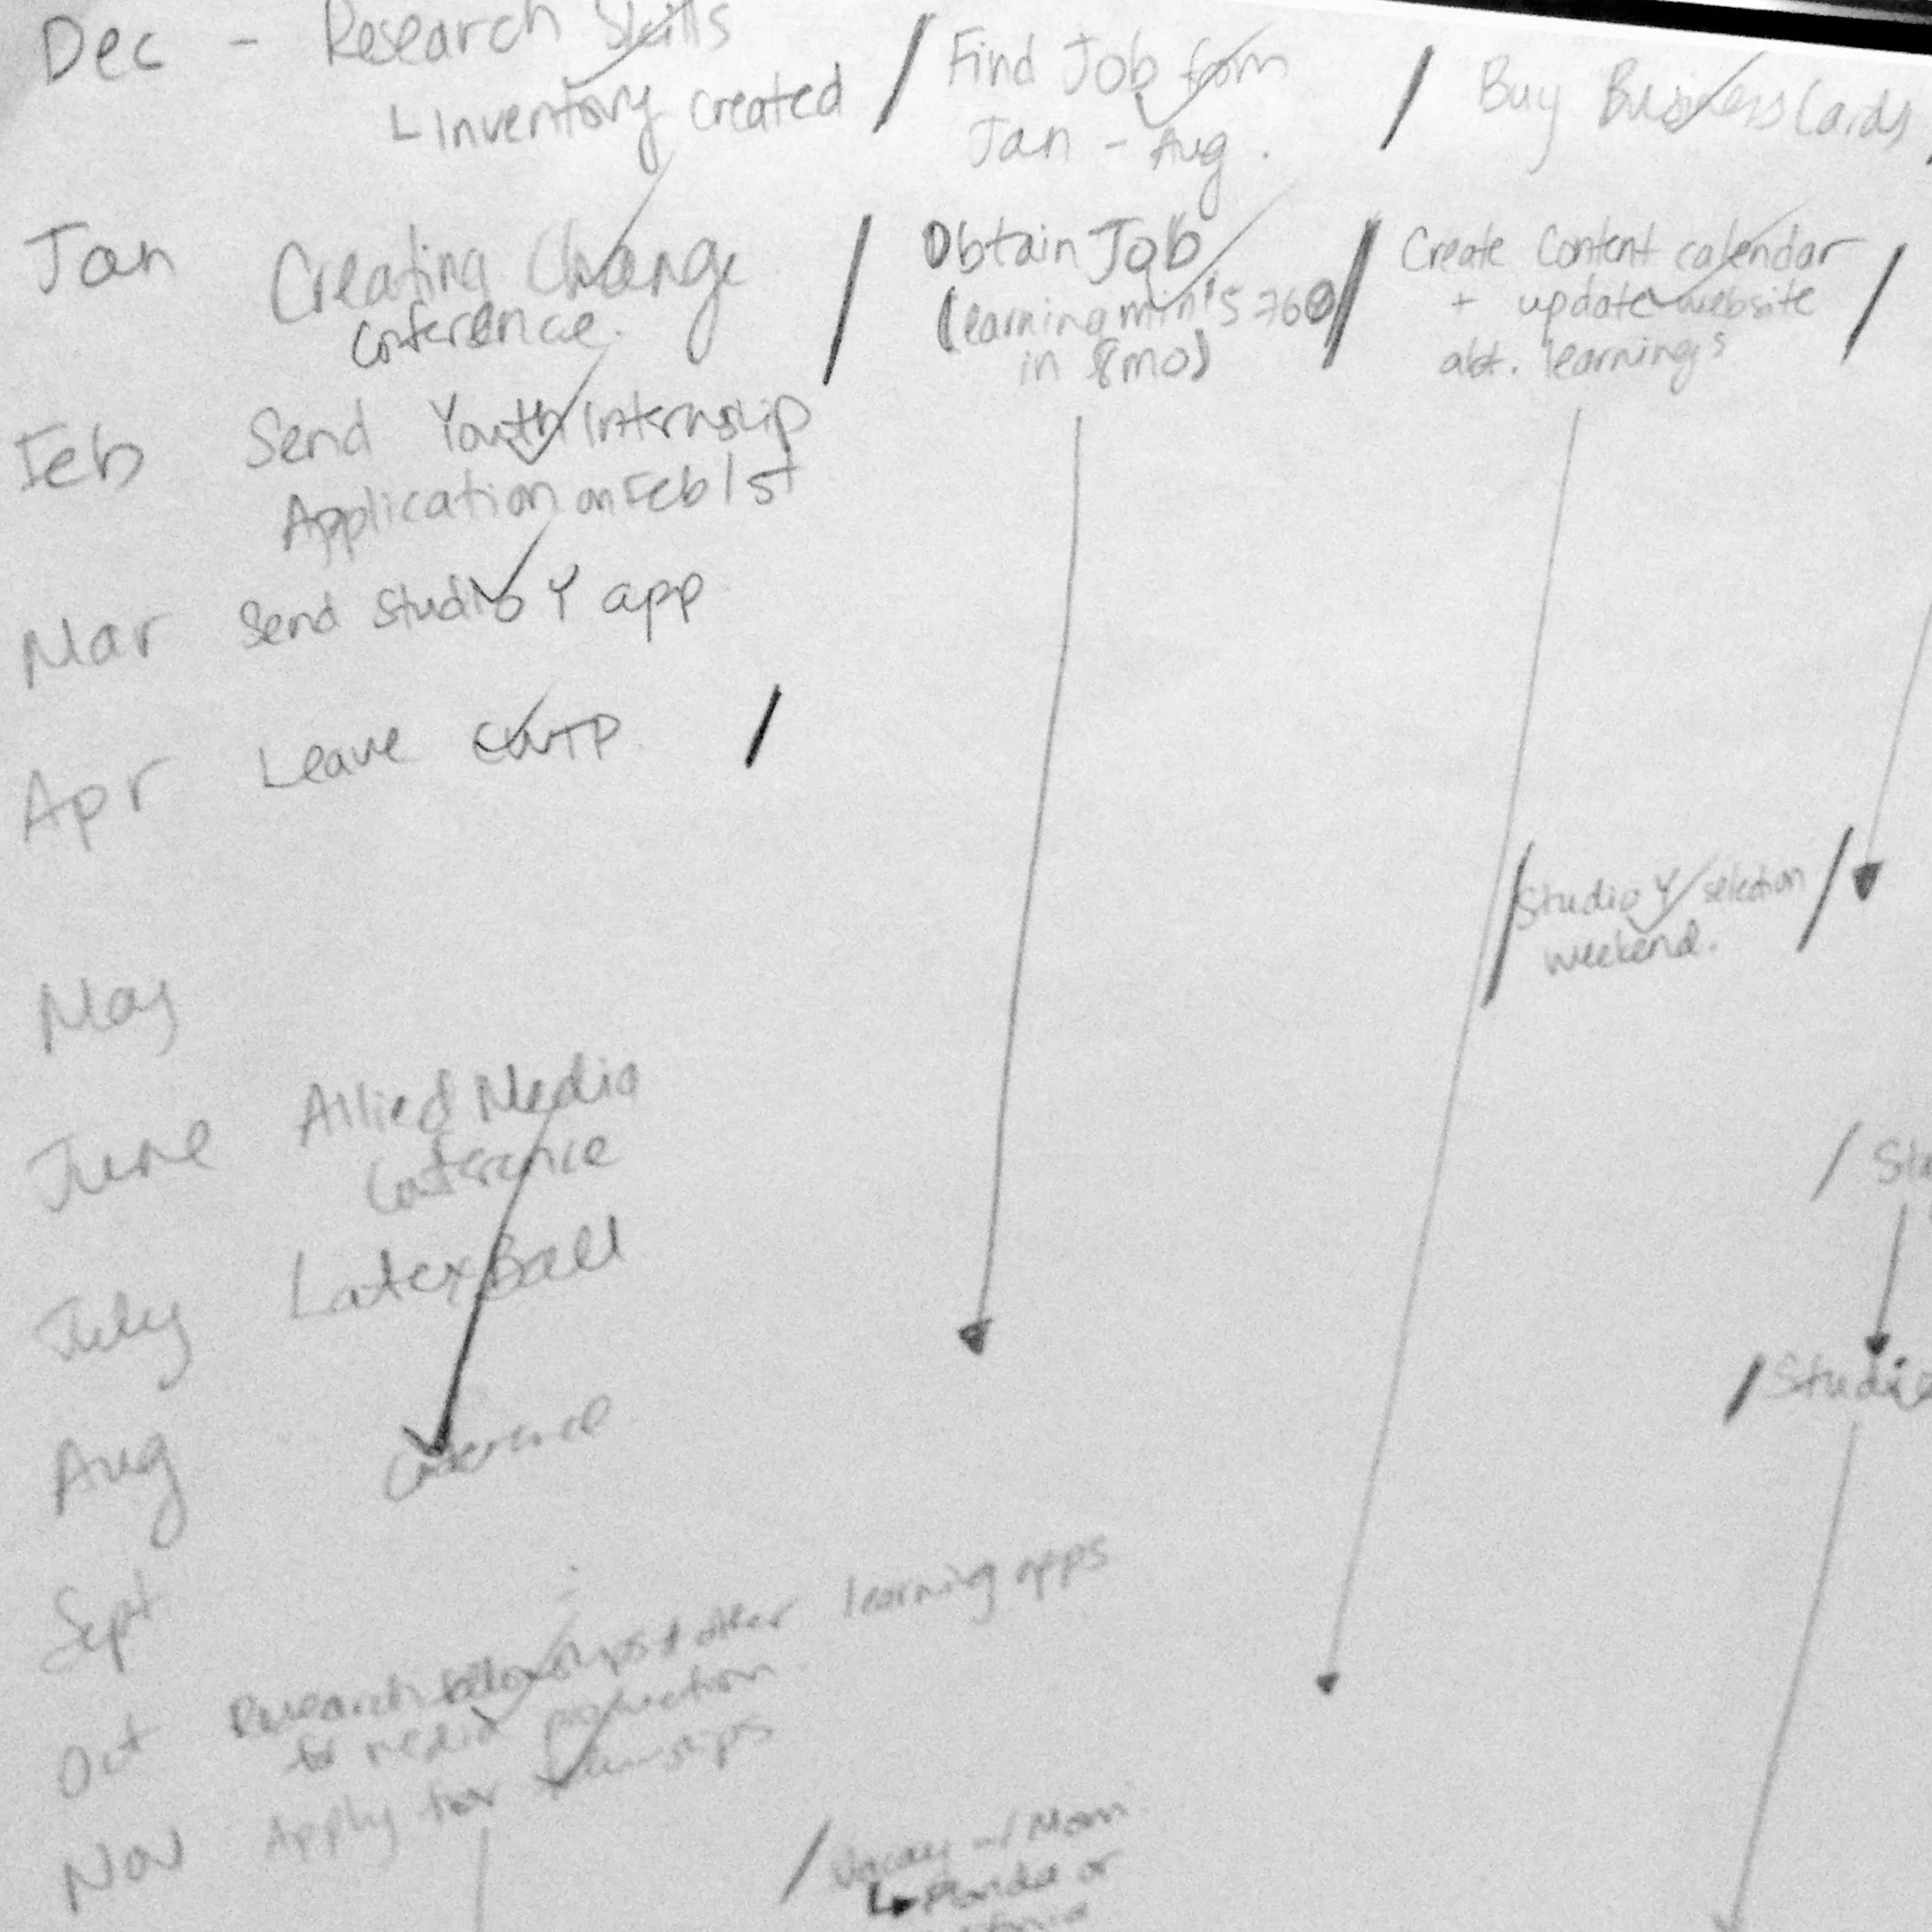 Dec - Research Skills / Find Job from / Buy Business Cards
L Inventory created Jan - Aug.
Jan Creating Change / Obtain Job / Create Content calendar /
Conference. in 8mo) + update website
abt. learnings
Feb Send Youth Internship
Application on Feb 1st
Mar Send Studio Y app
Apr Leave /
/ Studio Y selection /
weekend.
May
June Allied Media
Conference / St
July Latex Ball
/ Studio
Aug Conference
Sept
Oct Research fellowships & other learning apps
for media production
Nov Apply for
/ w/ Mom
or